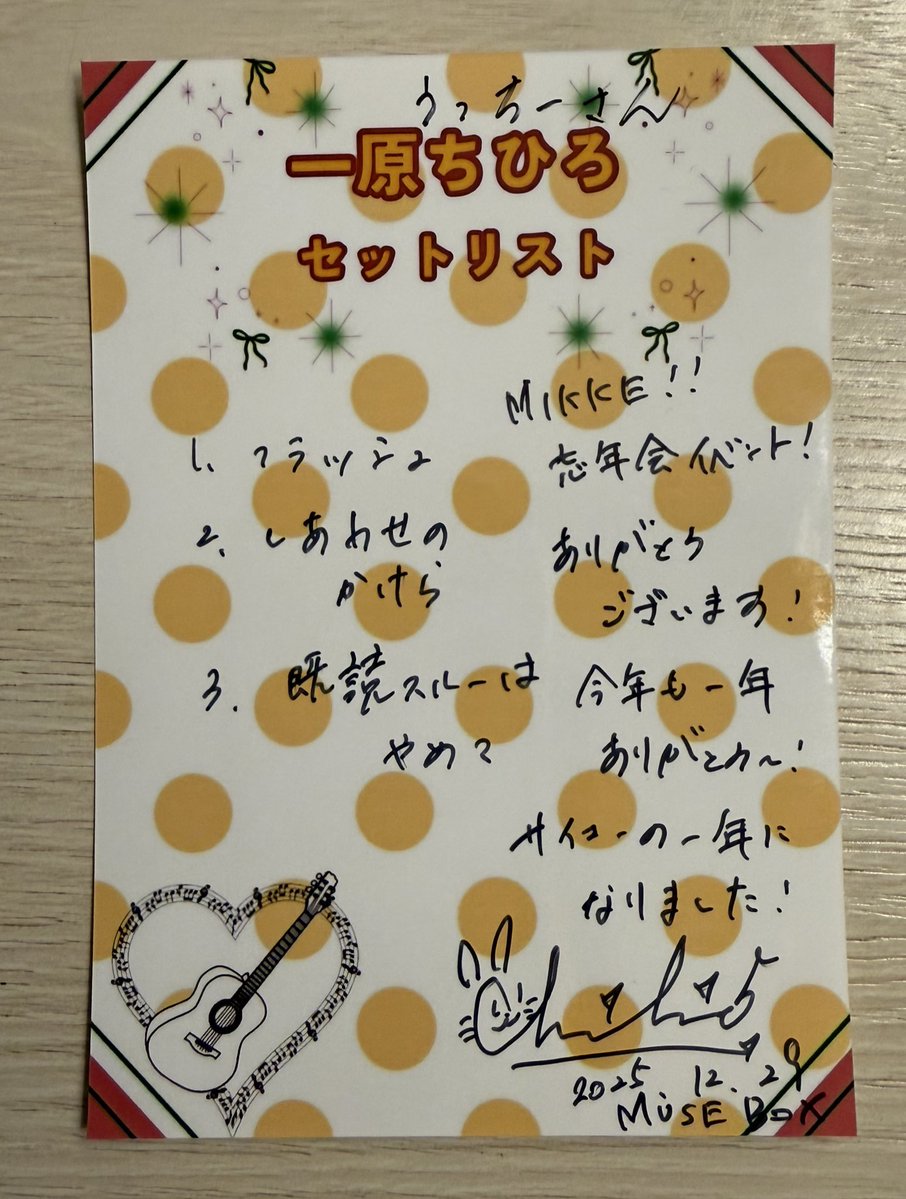 うっちーさん
一原ちひろ
セットリスト
1. フラッシュ
2. しあわせの
かけら
3. 既読スルーは
やめて
MIKKE!!
忘年会イベント!
ありがとう
ございます!
今年も一年
ありがとね〜!
サイコーの一年に
なりました!
2025 12.29
MUSE BOX